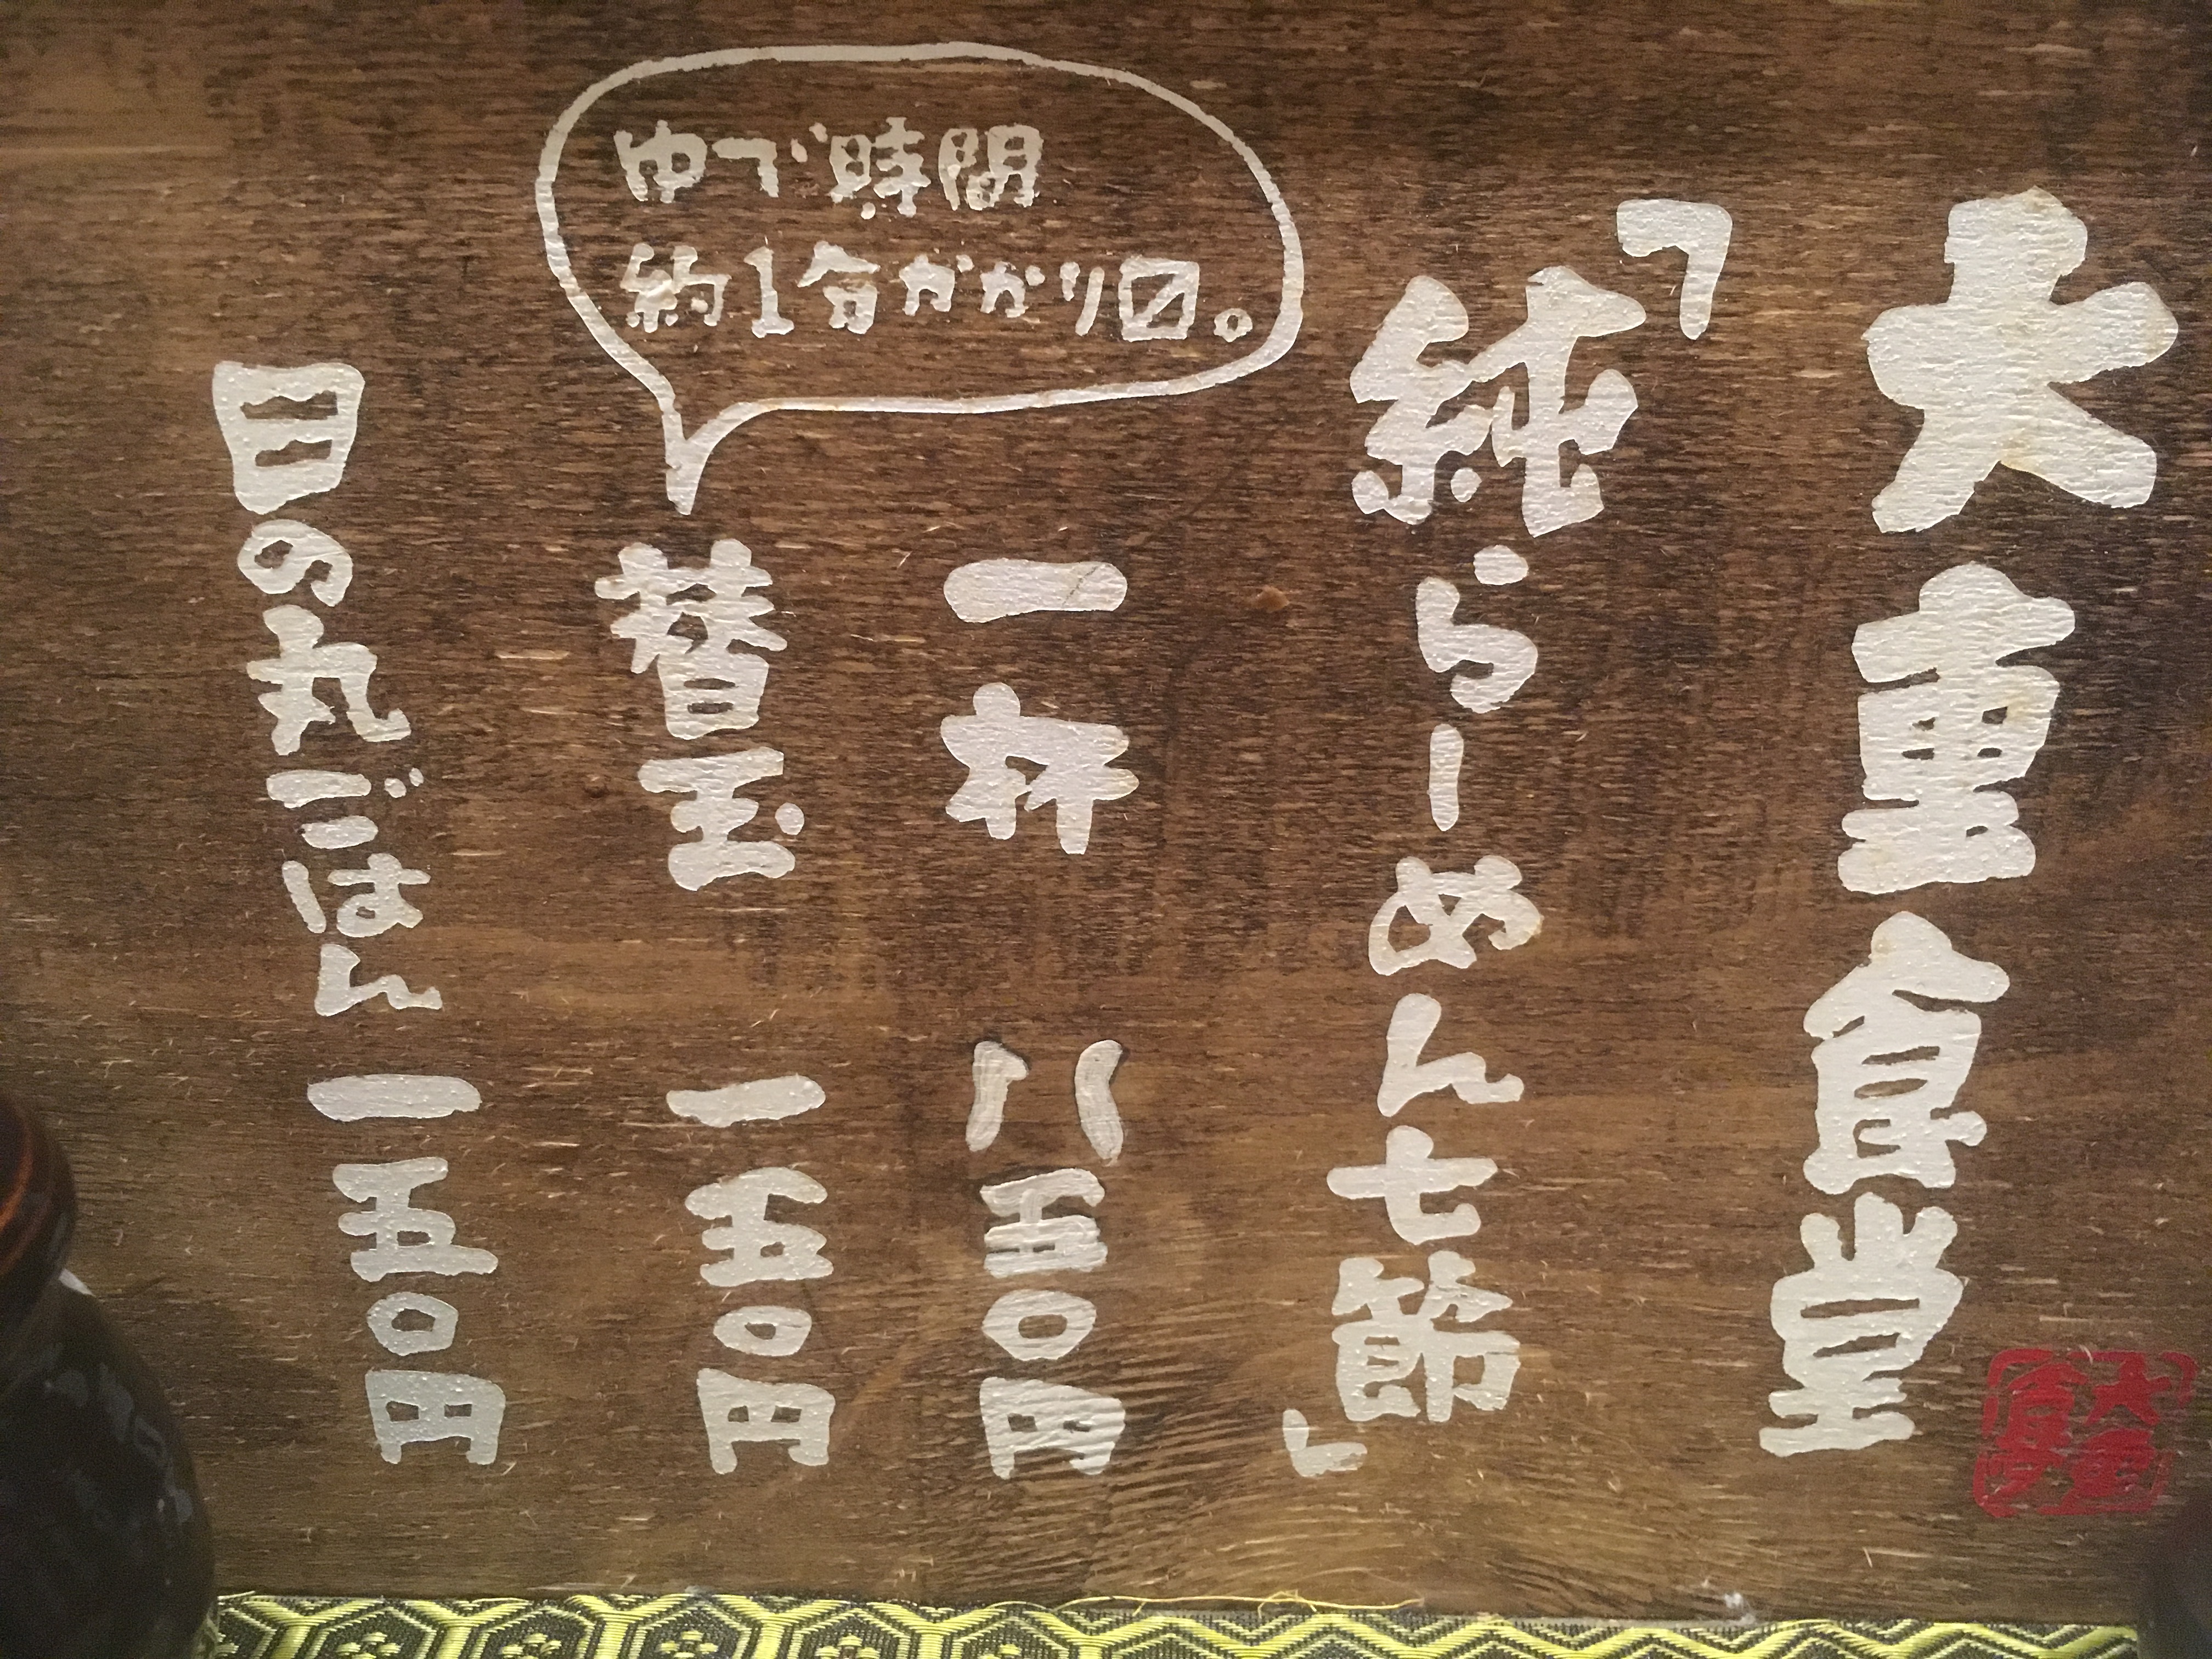 大重食堂
「純らーめん七節」
一杯 八五〇円
ゆで時間
約1分かかり〼。
替玉 一五〇円
日の丸ごはん 一五〇円